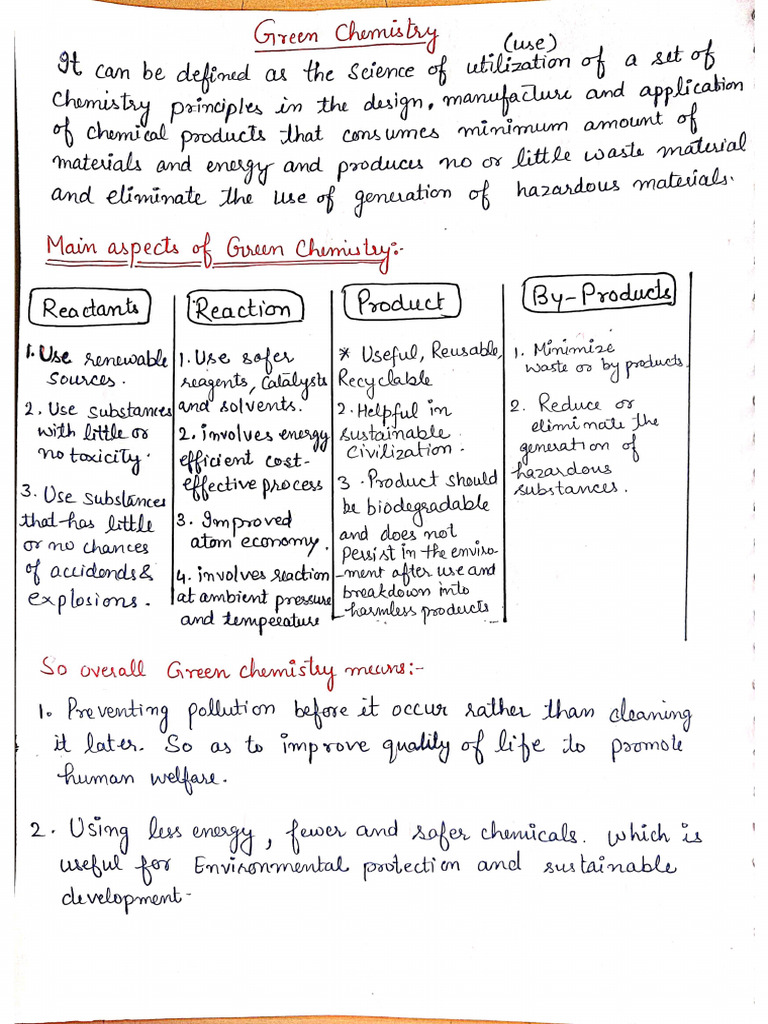 Green Chemistry
(use)
It can be defined as the Science of utilization of a set of
Chemistry principles in the design, manufacture and application
of chemical products that consumes minimum amount of
materials and energy and produces no or little waste material
and eliminate the use of generation of hazardous materials.
Main aspects of Green Chemistry:-
Reactants
1. Use renewable
sources.
2. Use substances
with little or
no toxicity.
3. Use substances
that has little
or no chances
of accidends &
explosions.
Reaction
1. Use safer
reagents, Catalysts
and solvents.
2. involves energy
efficient cost-
effective process
3. Improved
atom economy.
4. involves reaction
at ambient pressure
and temperature
Product
* Useful, Reusable,
Recyclable
2. Helpful in
sustainable
civilization.
3. Product should
be biodegradable
and does not
Persist in the enviro-
-ment after use and
breakdown into
harmless products
By-Products
1. Minimize
waste or by products.
2. Reduce or
eliminate the
generation of
hazardous
substances.
So overall Green chemistry means:-
1. Preventing pollution before it occur rather than cleaning
it later. So as to improve quality of life to promote
human welfare.
2. Using less energy, fewer and safer chemicals. which is
useful for Environmental protection and sustainable
development-